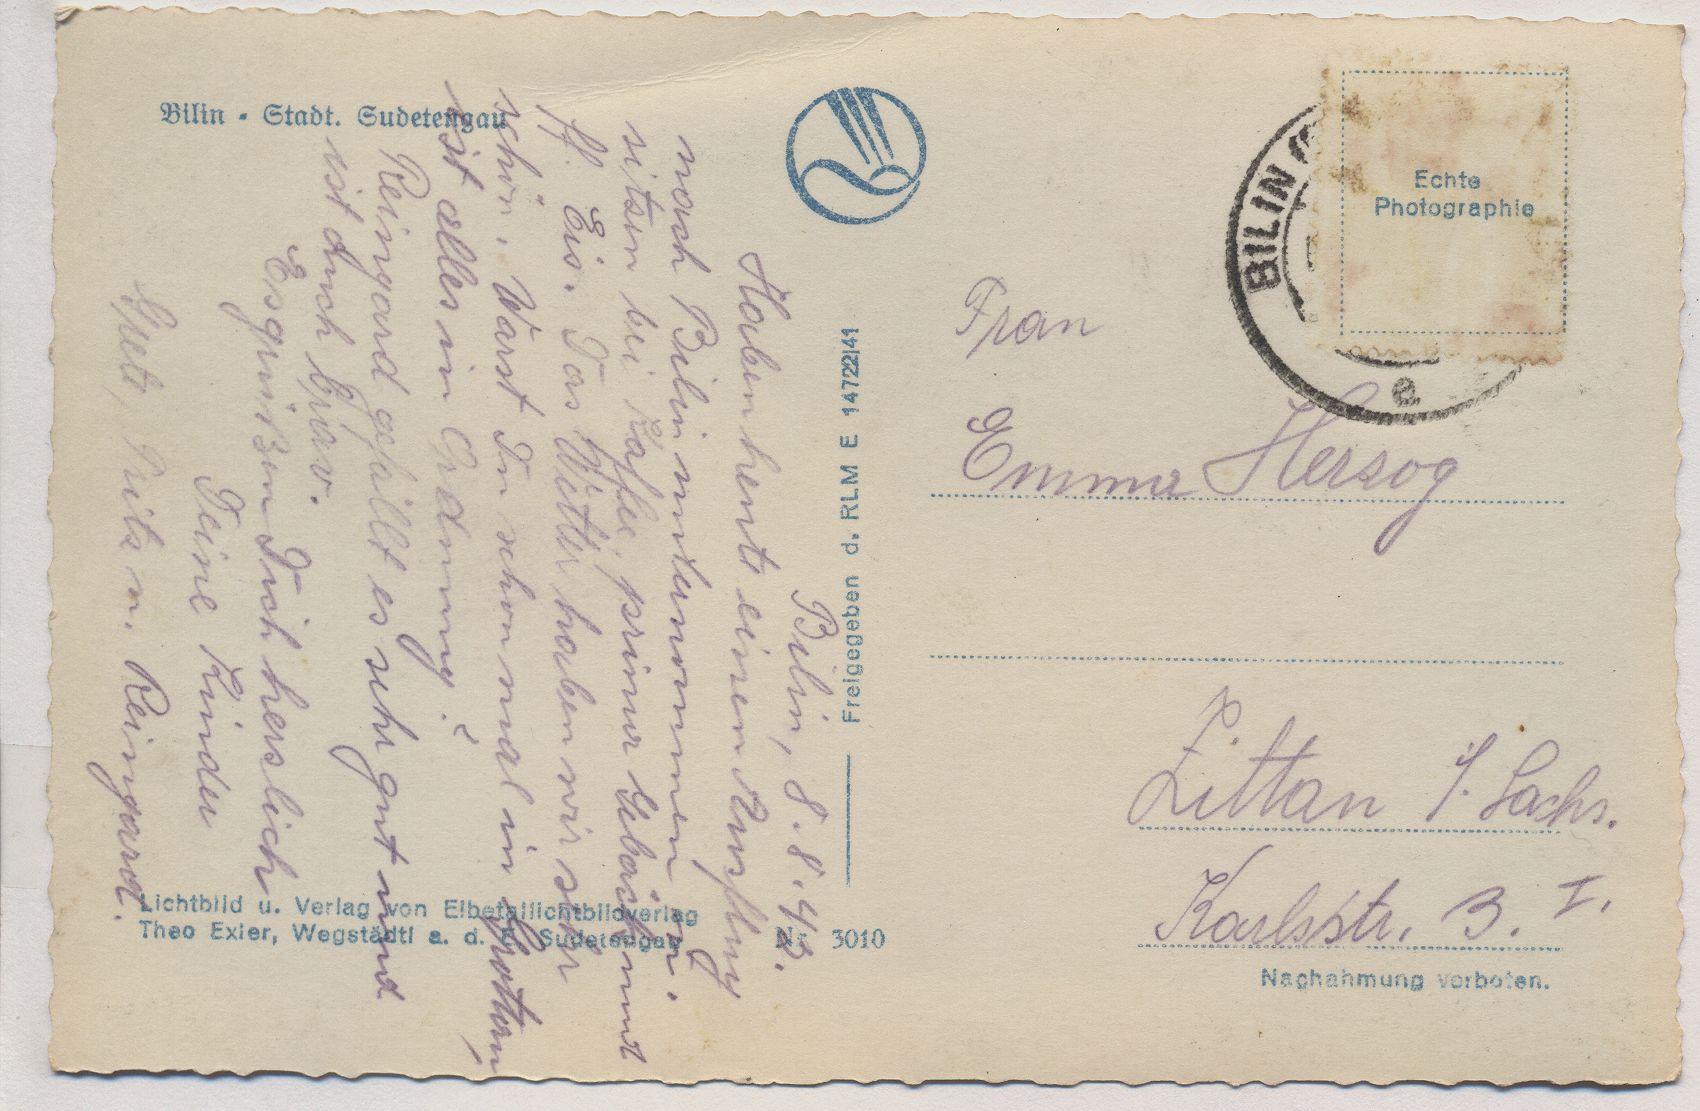 Bilin - Stadt. Sudetengau
Bilin, 8.8.42.
Haben heute einen Ausflug
nach Bilin unternommen u.
sitzen bei Kaffee, prima Gebäck und
Eis. Das Wetter haben wir sehr
schön. Warst Du schon mal in
ist alles in Ordnung?
Reingard gefällt es sehr gut und
ist auch brav.
Es grüßen Dich herzlich
Deine Kinder
Fritz u. Reingard.
Lichtbild u. Verlag von Elbetallichtbildverlag
Theo Exler, Wegstädtl a. d. E. Sudetengau
Nr. 3010
Freigegeben d. RLM E 14722/41
BILIN
e
Echte
Photographie
Frau
Emma Herzog
Zittau i. Sachs.
Karlsstr. 3. I.
Nachahmung verboten.